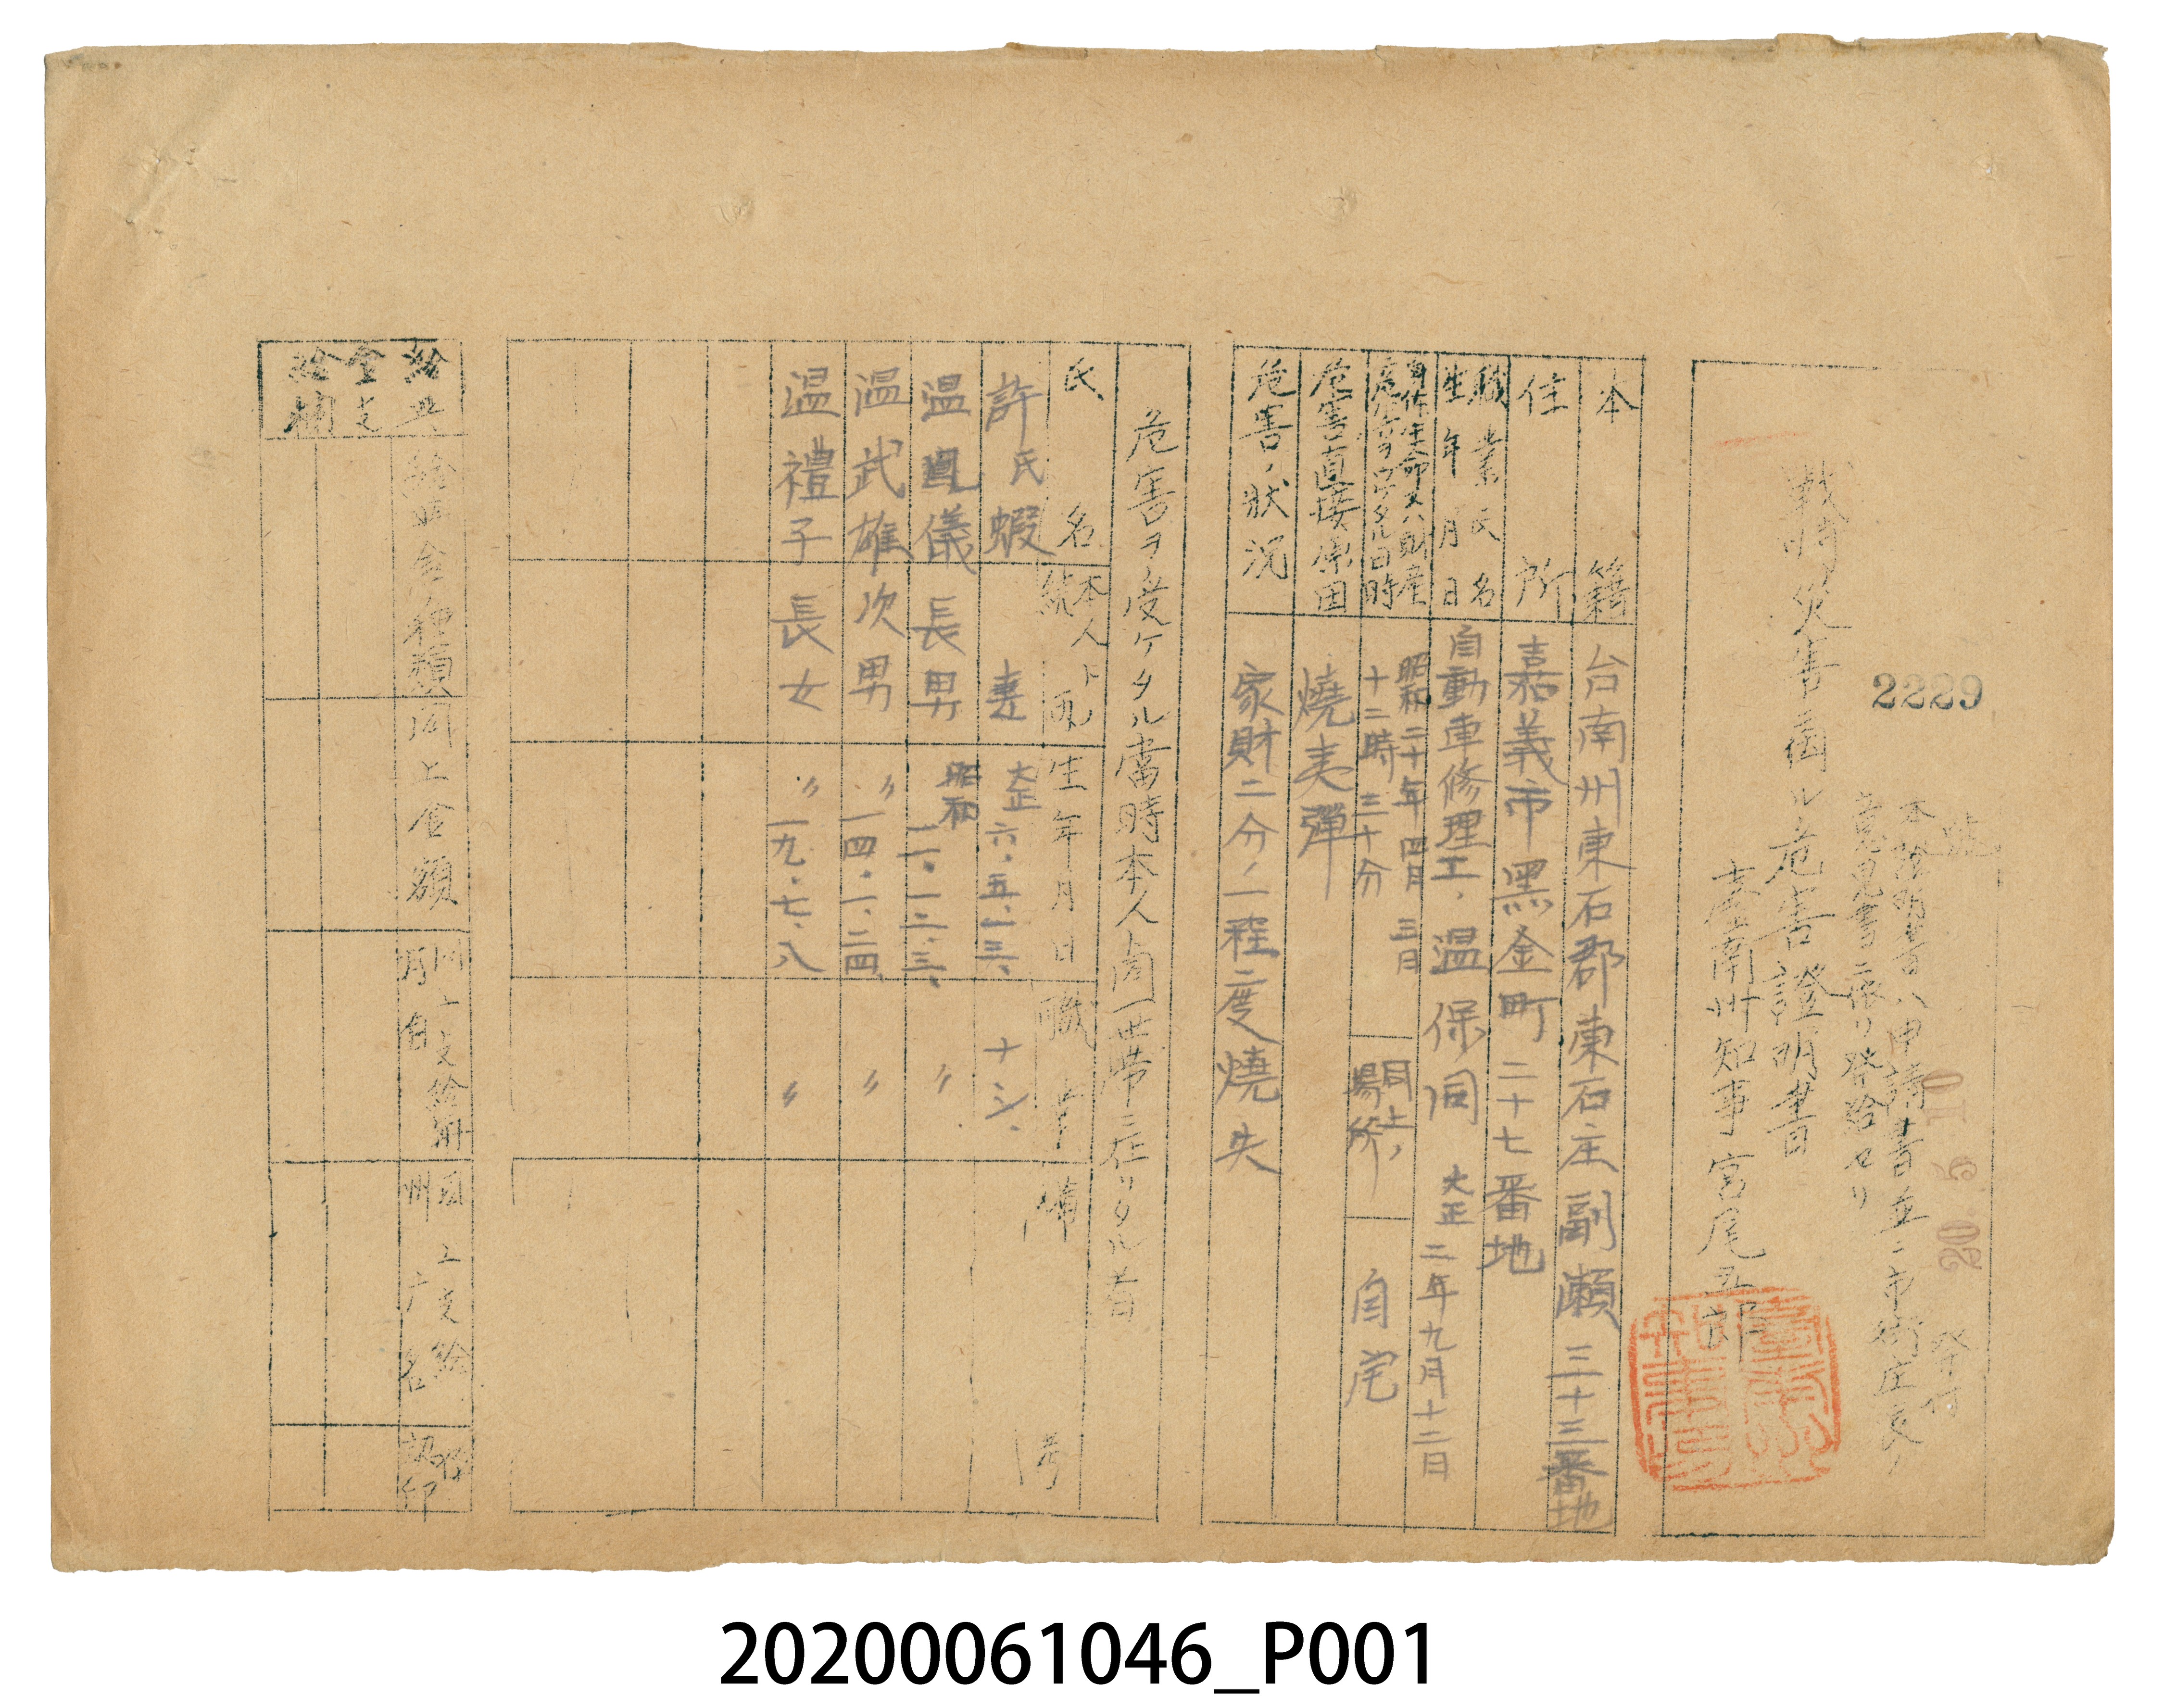 2229
號
20.5.10
發付
本證明書ハ申請書並ニ市街庄長ノ
意見書ニ依リ發給セリ
戰時災害ニ因ル危害證明書
臺南州知事宮尾五郎
本籍 台南州東石郡東石庄副瀨三十三番地
住所 嘉義市黑金町二十七番地
職業氏名 自動車修理工、温保同
生年月日 大正二年九月十二日
身体生命又ハ財産
危害ヲウケタル日時 昭和二十年四月三日
十二時三十分
同上ノ
場所 自宅
危害ノ直接原因 燒夷彈
危害ノ狀況 家財二分ノ一程度燒失
危害ヲ受ケタル當時本人ト同一世帶ニ在リタル者
氏名 本人トノ續 生年月日 職 備考
許氏蝦 妻 大正六.五.一三. ナシ.
温 儀 長男 昭和一一.一二.三. 〃
温武雄 次男 〃一四.一.二四. 〃
温禮子 長女 〃一九.七.八 〃
給與
金支
給欄
給與金ノ種類 同上金額
同上支給
月日
同上支給
州廳名
係
認印
20200061046_P001